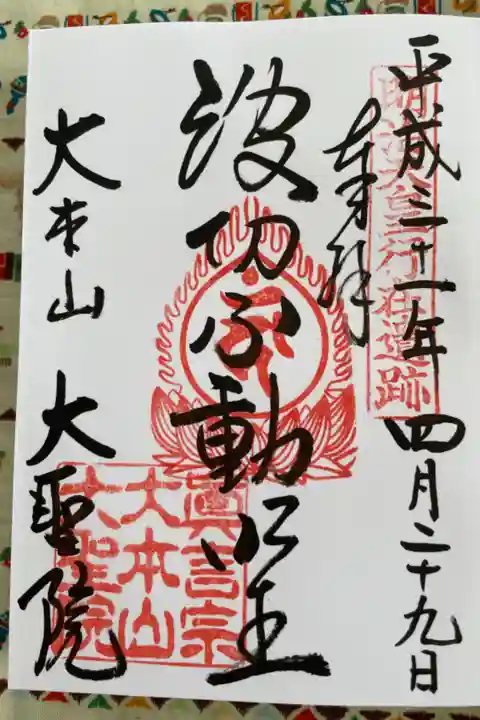 平成三十一年四月二十九日
奉拝
明治天皇行在遺跡
波切不動明王
大本山 大聖院
真言宗
大本山
大聖院